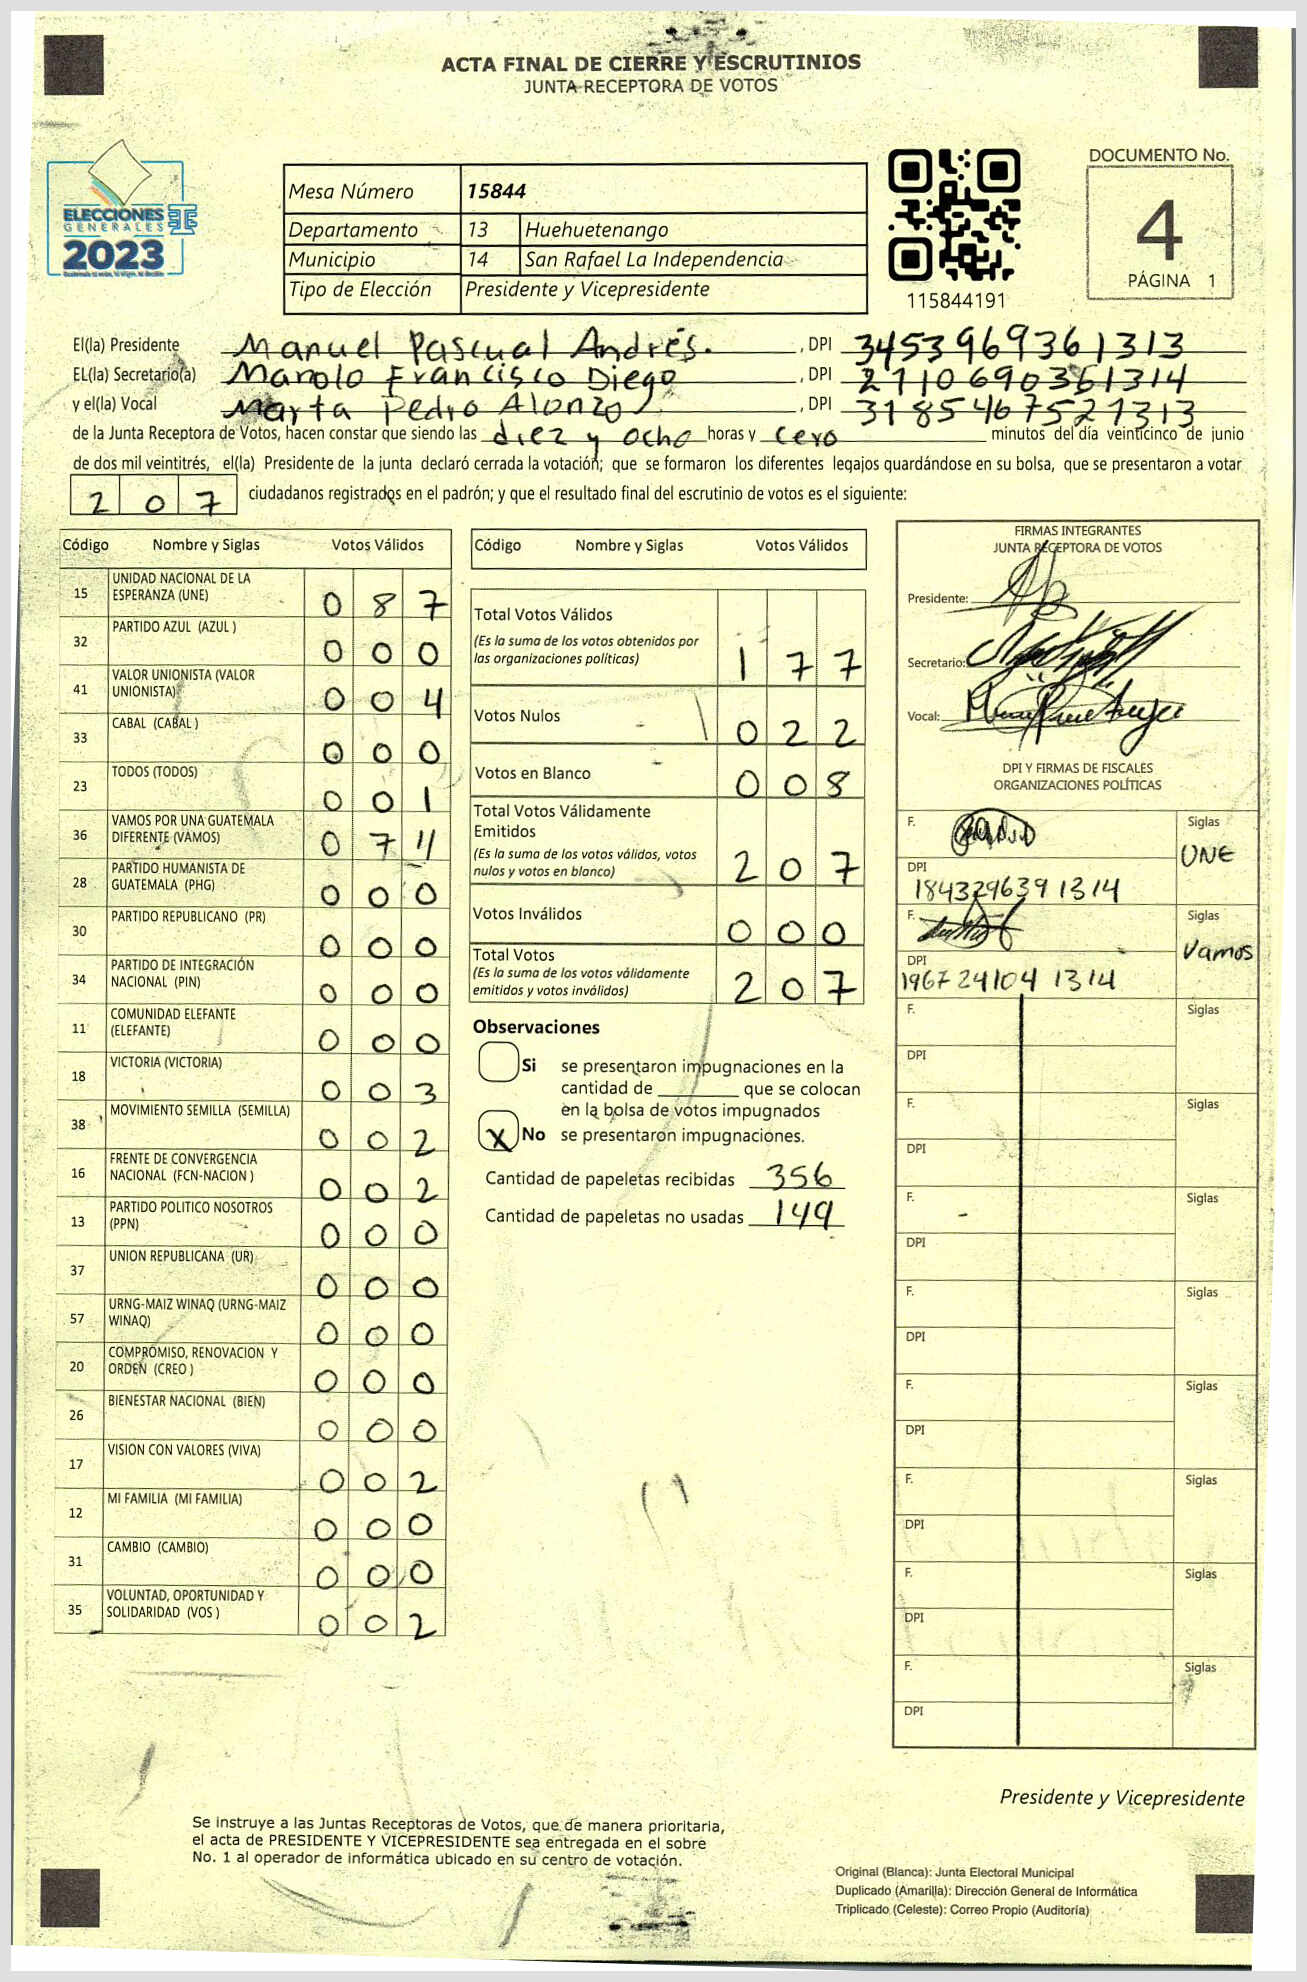 ACTA FINAL DE CIERRE Y ESCRUTINIOS
JUNTA RECEPTORA DE VOTOS
ELECCIONES
GENERALES
2023
Mesa Número 15844
Departamento 13 Huehuetenango
Municipio 14 San Rafael La Independencia
Tipo de Elección Presidente y Vicepresidente
115844191
DOCUMENTO No.
4
PÁGINA 1
El(la) Presidente Manuel Pascual Andrés. , DPI 3453969361313
EL(la) Secretario(a) Manolo Francisco Diego , DPI 2710690361314
y el(la) Vocal Marta Pedro Alonzo , DPI 3185467521313
de la Junta Receptora de Votos, hacen constar que siendo las diez y ocho horas y cero minutos del día veinticinco de junio
de dos mil veintitrés, el(la) Presidente de la junta declaró cerrada la votación; que se formaron los diferentes legajos quardándose en su bolsa, que se presentaron a votar
207 ciudadanos registrados en el padrón; y que el resultado final del escrutinio de votos es el siguiente:
Código Nombre y Siglas Votos Válidos
15 UNIDAD NACIONAL DE LA
ESPERANZA (UNE) 0 8 7
32 PARTIDO AZUL (AZUL ) 0 0 0
41 VALOR UNIONISTA (VALOR
UNIONISTA) 0 0 4
33 CABAL (CABAL ) 0 0 0
23 TODOS (TODOS) 0 0 1
36 VAMOS POR UNA GUATEMALA
DIFERENTE (VAMOS) 0 7 4
28 PARTIDO HUMANISTA DE
GUATEMALA (PHG) 0 0 0
30 PARTIDO REPUBLICANO (PR) 0 0 0
34 PARTIDO DE INTEGRACIÓN
NACIONAL (PIN) 0 0 0
11 COMUNIDAD ELEFANTE
(ELEFANTE) 0 0 0
18 VICTORIA (VICTORIA) 0 0 3
38 MOVIMIENTO SEMILLA (SEMILLA) 0 0 2
16 FRENTE DE CONVERGENCIA
NACIONAL (FCN-NACION ) 0 0 2
13 PARTIDO POLITICO NOSOTROS
(PPN) 0 0 0
37 UNION REPUBLICANA (UR) 0 0 0
57 URNG-MAIZ WINAQ (URNG-MAIZ
WINAQ) 0 0 0
20 COMPROMISO, RENOVACION Y
ORDEN (CREO ) 0 0 0
26 BIENESTAR NACIONAL (BIEN) 0 0 0
17 VISION CON VALORES (VIVA) 0 0 2
12 MI FAMILIA (MI FAMILIA) 0 0 0
31 CAMBIO (CAMBIO) 0 0 0
35 VOLUNTAD, OPORTUNIDAD Y
SOLIDARIDAD (VOS ) 0 0 2
Código Nombre y Siglas Votos Válidos
Total Votos Válidos
(Es la suma de los votos obtenidos por
las organizaciones políticas) 1 7 7
Votos Nulos 0 2 2
Votos en Blanco 0 0 8
Total Votos Válidamente
Emitidos
(Es la suma de los votos válidos, votos
nulos y votos en blanco) 2 0 7
Votos Inválidos 0 0 0
Total Votos
(Es la suma de los votos válidamente
emitidos y votos inválidos) 2 0 7
Observaciones
Si se presentaron impugnaciones en la
cantidad de ________ que se colocan
en la bolsa de votos impugnados
X No se presentaron impugnaciones.
Cantidad de papeletas recibidas 356
Cantidad de papeletas no usadas 149
FIRMAS INTEGRANTES
JUNTA RECEPTORA DE VOTOS
Presidente:
Secretario:
Vocal:
DPI Y FIRMAS DE FISCALES
ORGANIZACIONES POLÍTICAS
F. Siglas
UNE
DPI
1843296391314
F. Siglas
Vamos
DPI
1967 24104 1314
F. Siglas
DPI
F. Siglas
DPI
F. Siglas
DPI
F. Siglas
DPI
F. Siglas
DPI
F. Siglas
DPI
F. Siglas
DPI
F. Siglas
DPI
Presidente y Vicepresidente
Se instruye a las Juntas Receptoras de Votos, que de manera prioritaria,
el acta de PRESIDENTE Y VICEPRESIDENTE sea entregada en el sobre
No. 1 al operador de informática ubicado en su centro de votación.
Original (Blanca): Junta Electoral Municipal
Duplicado (Amarilla): Dirección General de Informática
Triplicado (Celeste): Correo Propio (Auditoría)